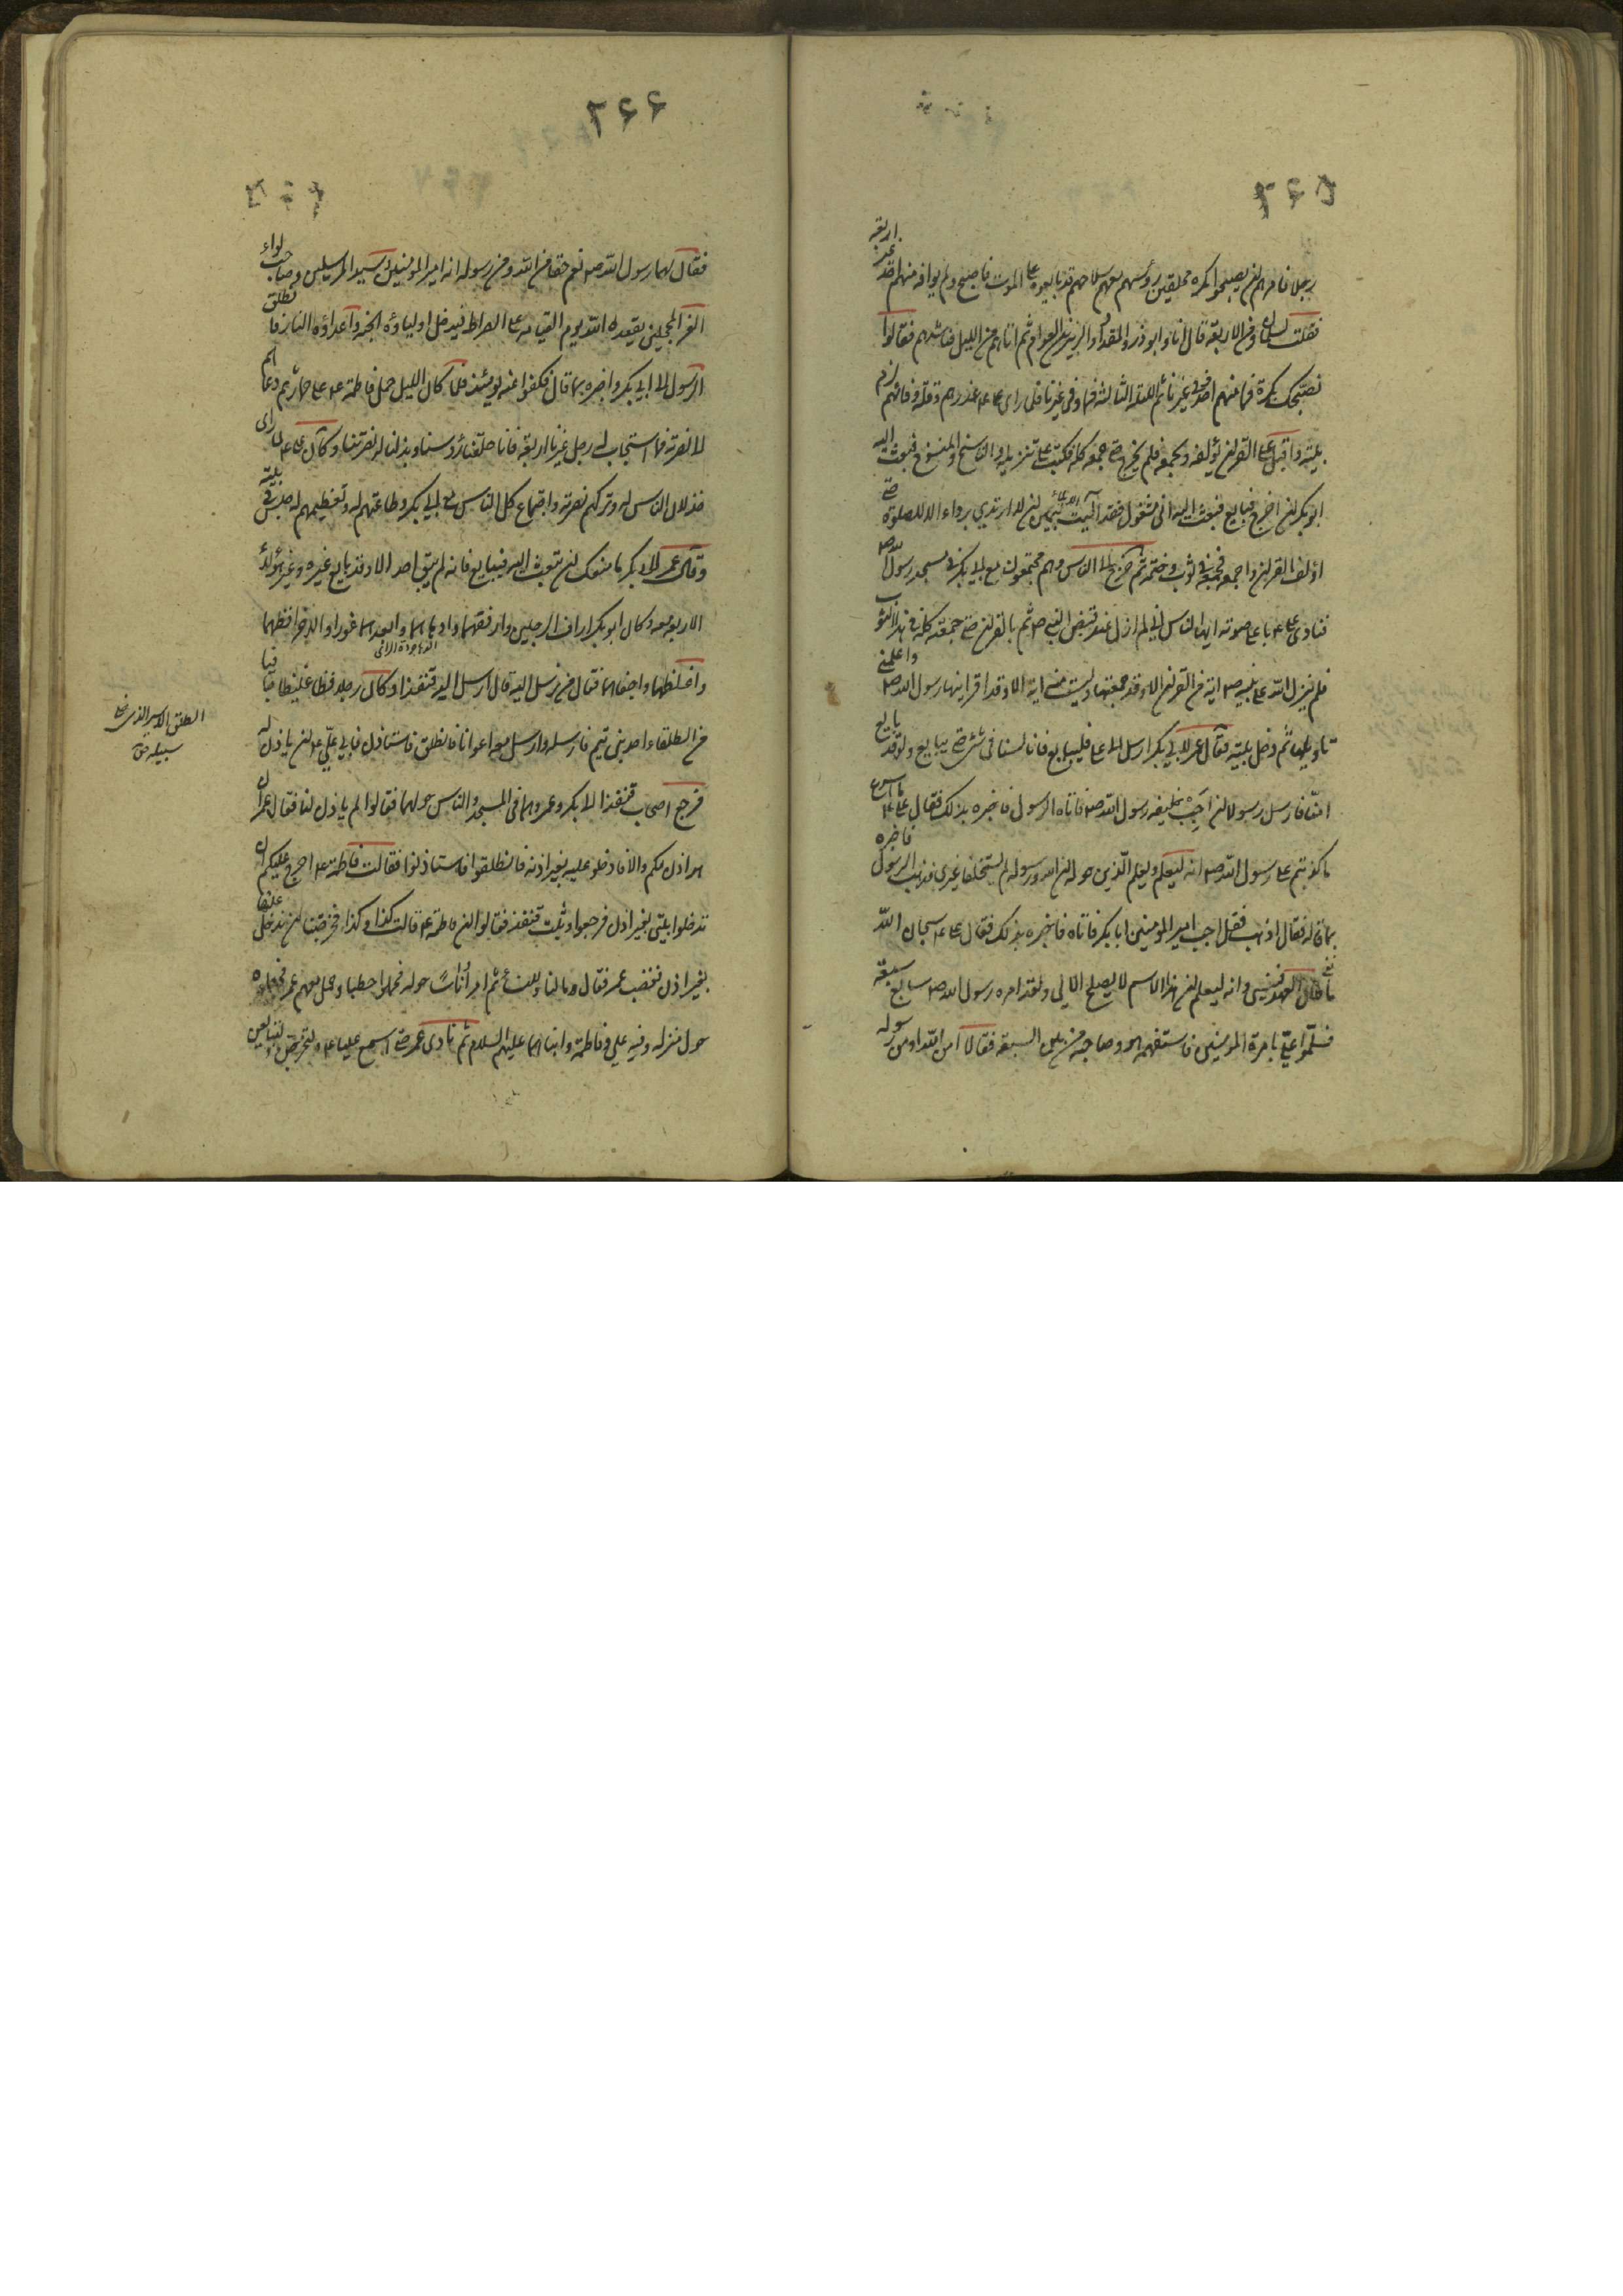 ٢٦٥
رجلا فامرهم ان يصبحوا بكرة محلقين رؤسهم معهم سلاحهم قد بايعوه على الموت فاصبح ولم يوافه منهم احد غير اربعة
فقلت لسلمان ومن الاربعة قال انا وابو ذر والمقداد والزبير بن العوام ثم اتاهم من الليل فناشدهم فقالوا
نصبحك بكرة فما منهم احد وفى غيرنا ثم الليلة الثالثة فما وفى غيرنا فلما راى على ع غدرهم وقلة وفائهم لزم
بيته واقبل على القران يؤلفه ويجمعه فلم يخرج حتى جمعه كله فكتبه على تنزيله والناسخ والمنسوخ فبعث اليه
ابو بكر ان اخرج فبايع فبعث اليه انى مشغول فقد آليت بيمين ان لا ارتدي برداء الا للصلوة حتى
اؤلف القران واجمعه فجمعه في ثوب وختمه ثم خرج الى الناس وهم مجتمعون مع ابى بكر في مسجد رسول الله ص
فنادى على ع باعلى صوته ايها الناس اني لم ازل منذ قبض النبى ص ثم بالقران حتى جمعته كله في هذا الثوب
فلم ينزل الله على نبيه ص اية من القران الا وقد جمعتها وليست منه اية الا وقد اقرانيها رسول الله ص واعلمنى
تاويلها ثم دخل بيته فقال عمر لابي بكر ارسل الى على فليبايع فانا لسنا فى شئ حتى يبايع ولو قد بايع
امناه فارسل رسولا ان اجب خليفة رسول الله ص فاتاه الرسول فاخبره بذلك فقال على ع ما اسرع
ما كذبتم على رسول الله ص انه ليعلم ويعلم الذين حوله ان الله ورسوله لم يستخلفا غيرى فذهب الرسول فاخبره
بما قاله فقال اذهب فقل اجب امير المؤمنين ابا بكر فاتاه فاخبره بذلك فقال على ع سبحان الله
ما طال العهد فينسى وانه ليعلم ان هذا الاسم لا يصلح الا لى ولقد امره رسول الله ص سابع سبعة
فسلموا علىّ بامرة المومنين فاستفهمه هو وصاحبه من بين السبعة فقالا امن الله او من رسوله
٢٦٦
فقال لهما رسول الله ص نعم حقا من الله ومن رسوله انه امير المومنين وسيد المرسلين وصاحب لواء
الغر المحجلين يقعده الله يوم القيامه على الصراط فيدخل اولياؤه الجنة واعداؤه النار فانطلق
الرسول الى ابي بكر واخبره بما قال فكفوا عنه يومئذ فلما كان الليل حمل فاطمة ع على حمار ثم دعاهم
الى نصرته فما استجاب له رجل غيرنا اربعة فانا حلقنا رؤسنا وبذلنا له نصرتنا وكان على ع لما راى
خذلان الناس له وتركهم نصرته واجتماع كل الناس مع ابي بكر وطاعتهم له وتعظيمهم له جلس في بيته
وقال عمر لابى بكر ما منعك ان تبعث اليه فيبايع فانه لم يبق احد الا وقد بايع غيره وغير هؤلاء
الاربعة معه وكان ابو بكر اراف الرجلين وارفقهما وادهاهما وابعدهما غورا والاخر افظهما
واغلظهما واجفاهما فقال من نرسل اليه قال ارسل اليه قنفذا وكان رجلا فظا غليظا جافيا
من الطلقاء احد بنى تيم فارسله وارسل معه اعوانا فانطلق فاستاذن فابي علّي ع ان ياذن له
فرجع اصحاب قنفذ الى ابى بكر وعمر وهما فى المسجد والناس حولهما فقالوا لم ياذن لنا فقال عمر ان
هو اذن لكم والا فادخلوا عليه بغير اذنه فانطلقوا فاستاذنوا فقالت فاطمة ع احرج عليكم ان
تدخلوا بيتى بغير اذن فرجعوا وثبت قنفذ فقالوا ان فاطمة ع قالت كذا وكذا فحرجتنا ان ندخل عليها
بغير اذن فغضب عمر فقال ما لنا وللنساء ثم امر اُناسًا حوله فحملوا حطبا وحمل معهم عمر فجعلوه
حول منزله وفيه علي وفاطمة وابناهما عليهم السلام ثم نادى عمر حتى اسمع عليا ع لتخرجن ولتبايعن
الطلق الاسير الذي خلى
سبيله ق